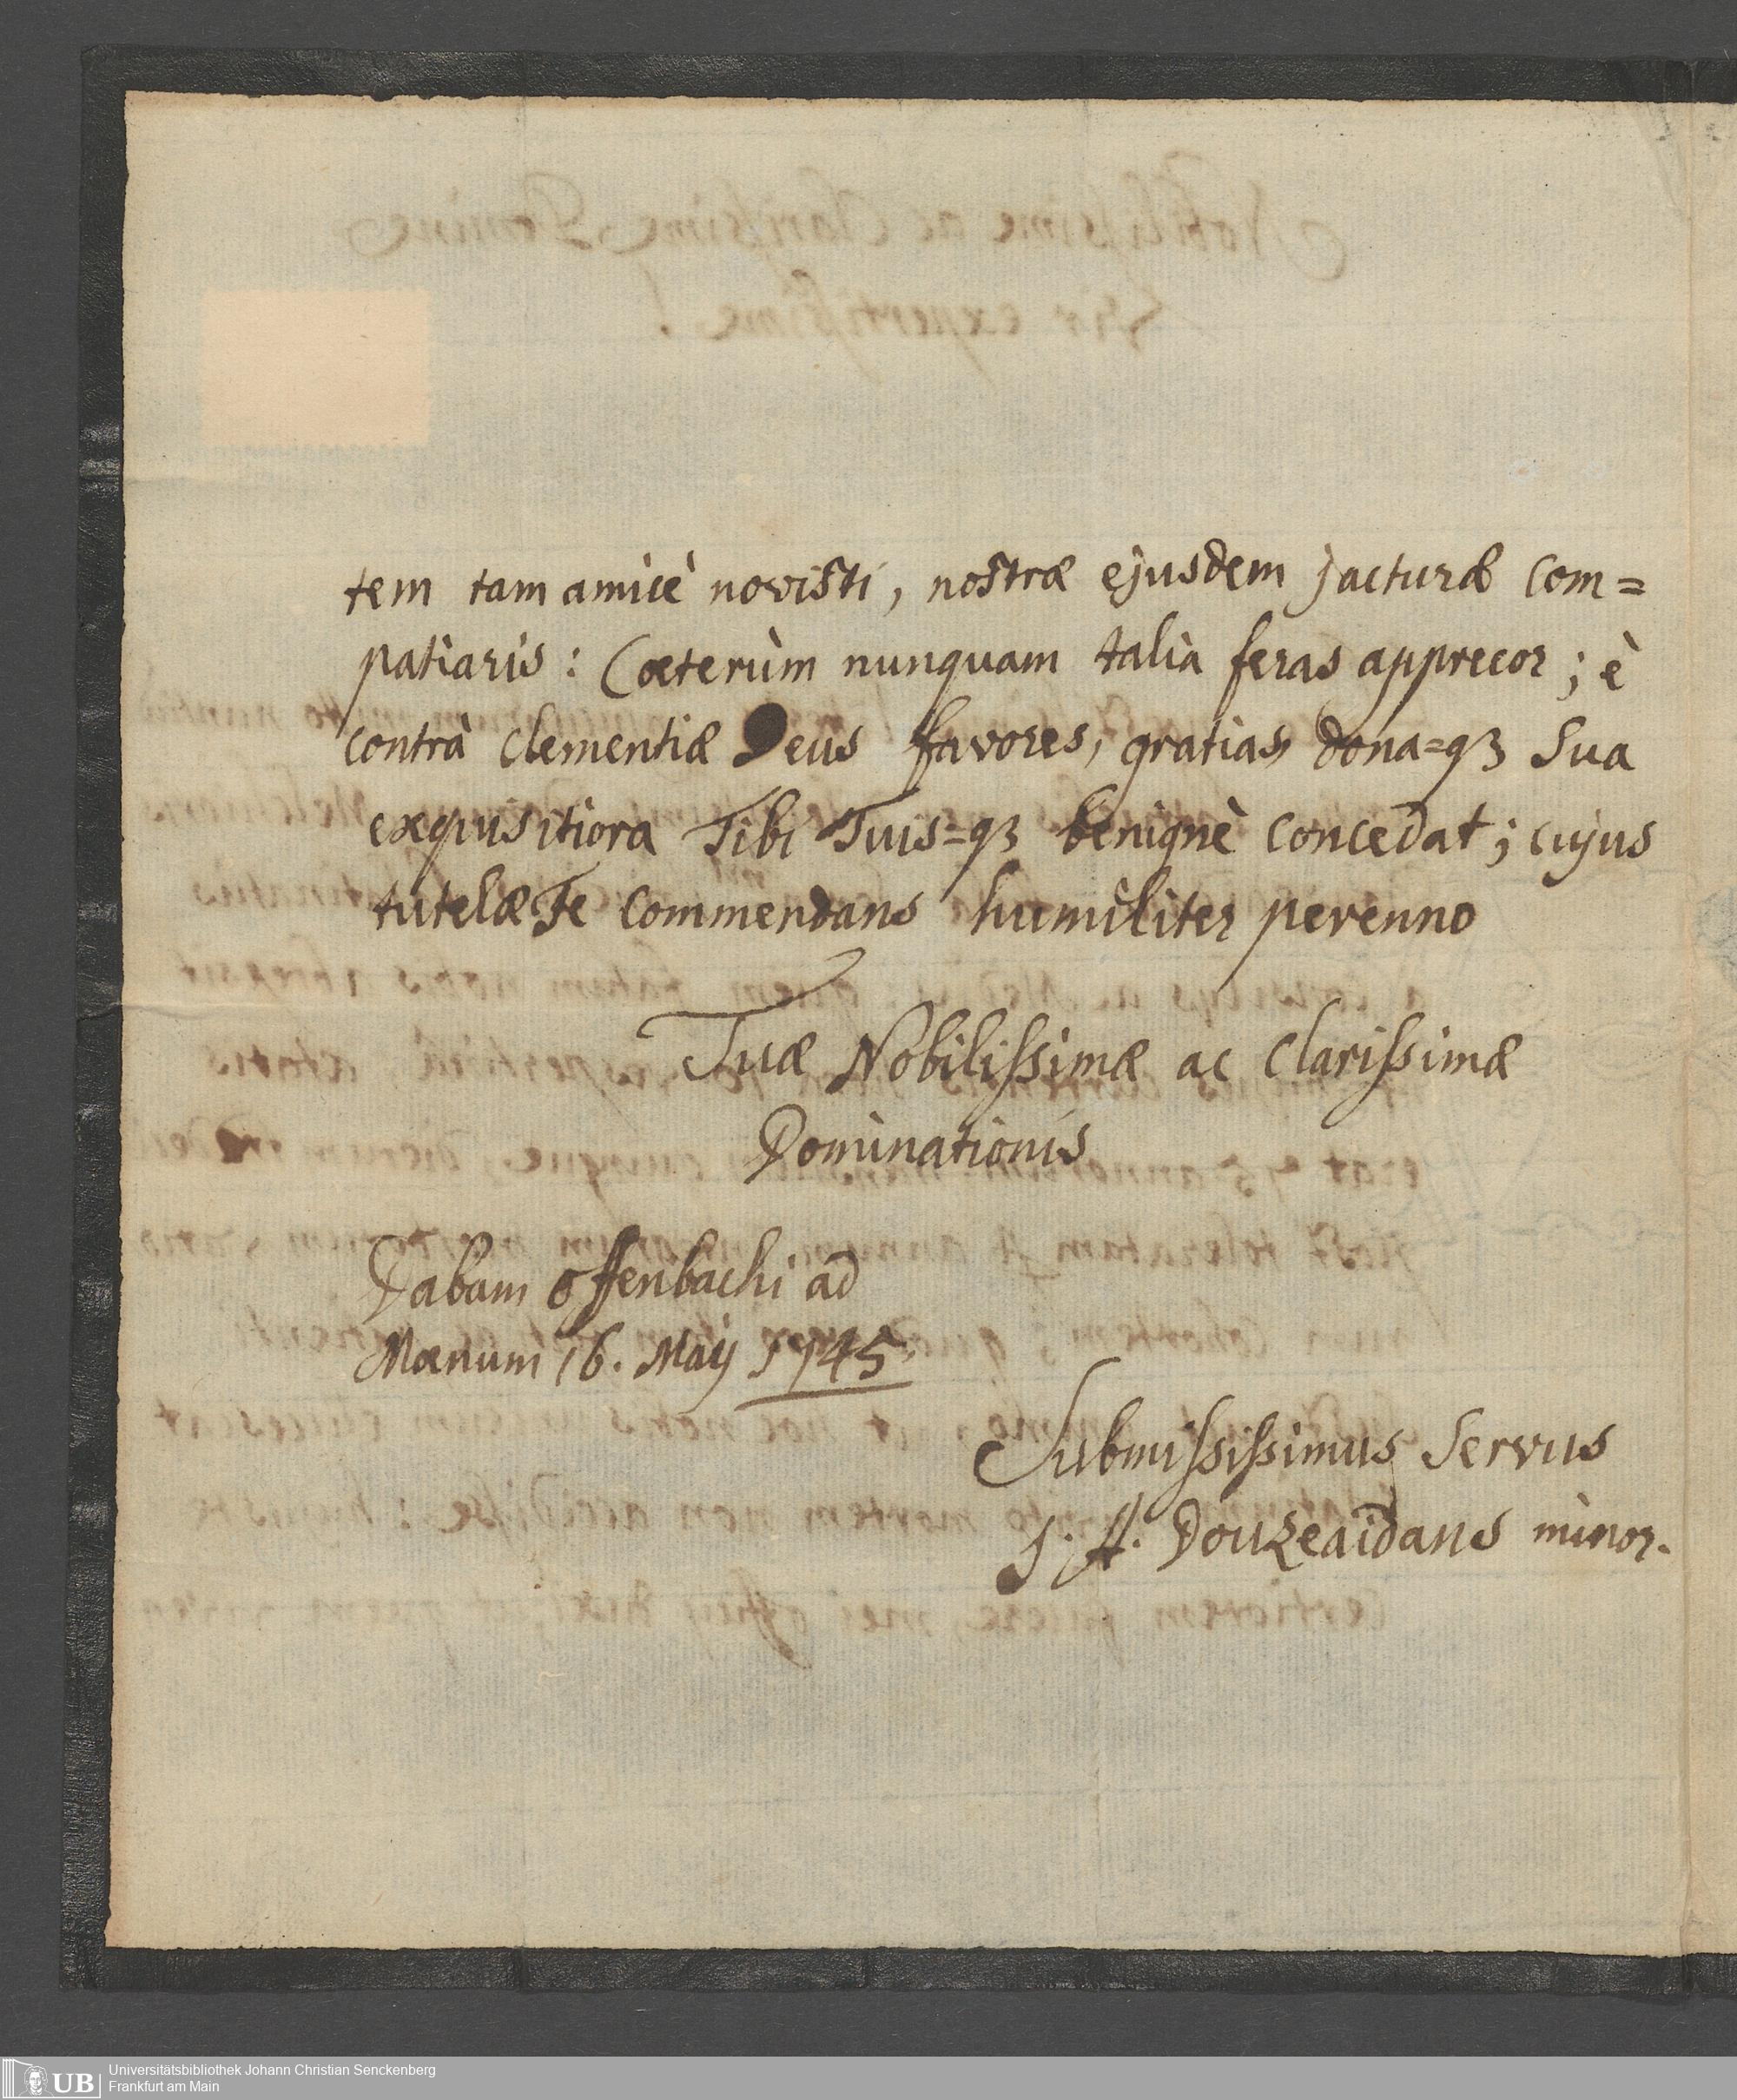 tem tam amicè novisti, nostræ ejusdem jacturæ com=
patiaris: Cœterùm nunquam talia feras apprecor; è
contrà clementiæ Deus favores, gratias dona=qꝫ Sua
exquisitiora Tibi Tuis=qꝫ benignè concedat; cujus
tutelæ Te commendans humiliter perenno
Tuæ Nobilissimæ ac Clarissimæ
Dominationis
Dabam Offenbachi ad
Mœnum 16. Maij 1745.
Submississimus Servus
J. A. Douzeaidans minor.
UB
Universitätsbibliothek Johann Christian Senckenberg
Frankfurt am Main